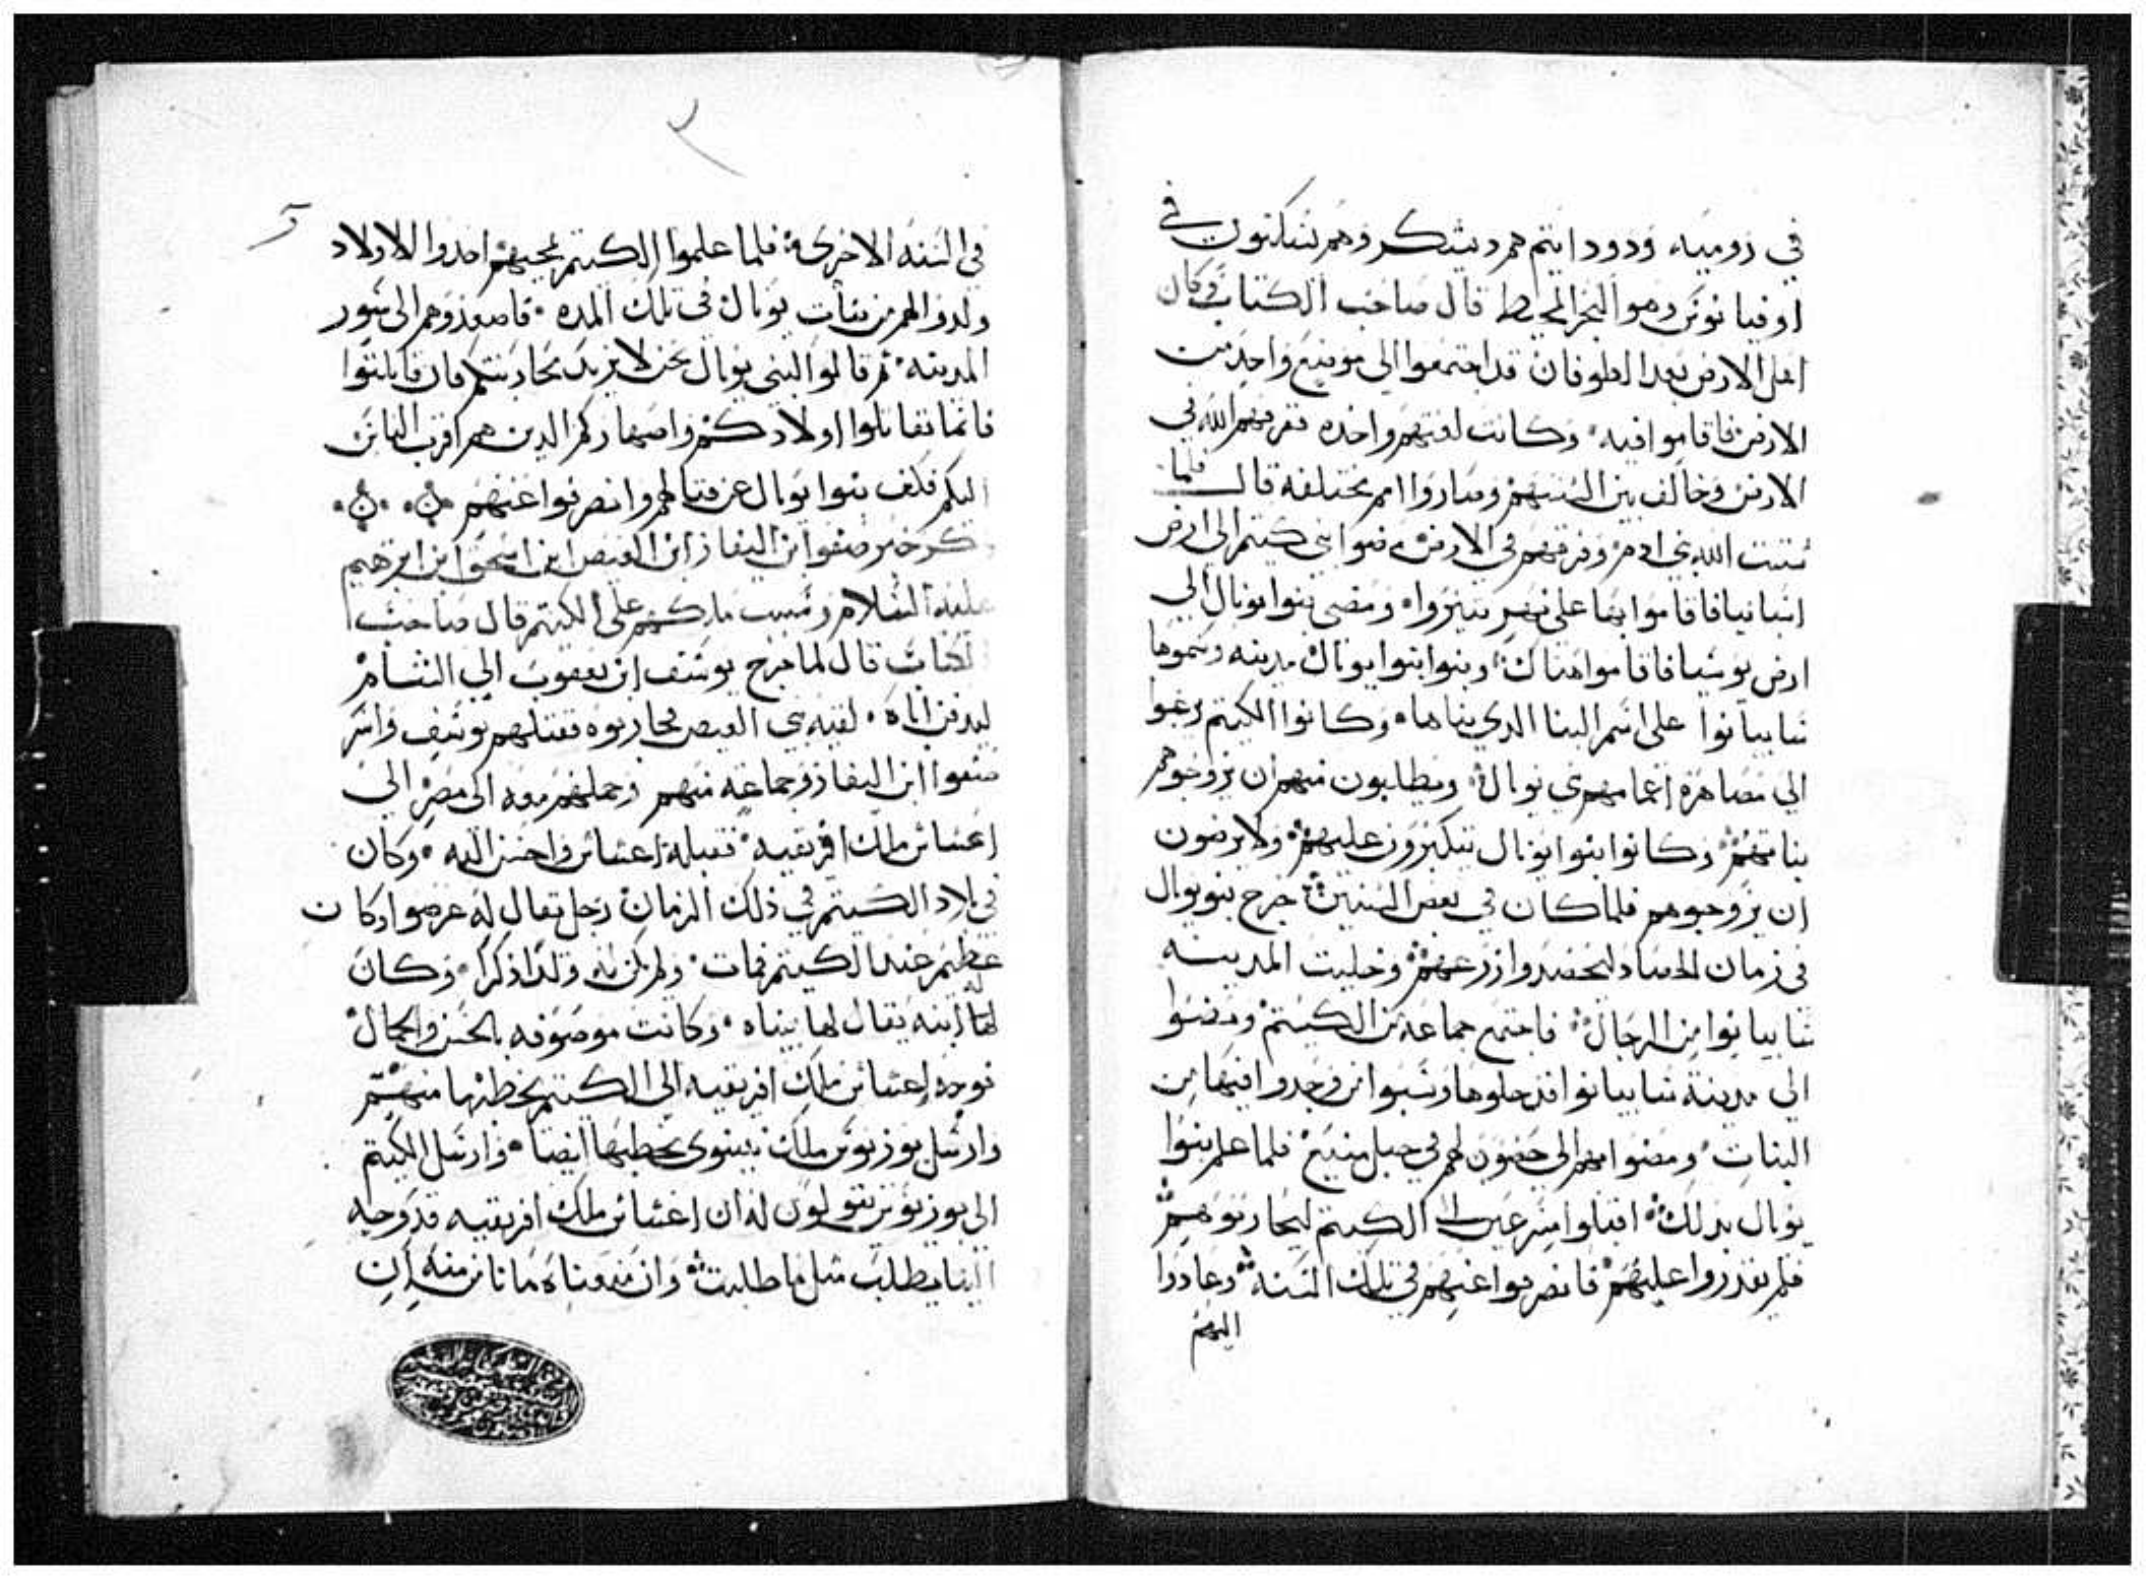 في روميه ودودانيم هم ديشكر وهم يسكنون في
اوقيانوس وهو البحر المحيط قال صاحب الكتاب وكان
اهل الارض بعد الطوفان قد اجتمعوا الي موضع واحد من
الارض فاقاموا فيه وكانت لغتهم واحده ففرقهم الله في
الارض وخالف بين السنتهم وصاروا امم مختلفه قال فلما
شتت الله بني ادم وفرقهم في الارض مضوا بني كيتم الي ارض
اسبانيا فاقاموا بها على نهر تيبروا ومضى بنوا يوبال الي
ارض توسيا فاقاموا هناك وبنوا بنوا يوبال مدينه وسموها
سابيانوا على اسم البنا الدي بناها وكانوا الكيتم رغبوا
الي مصاهرة اعمامهم بني يوبال ويطلبون منهم ان يزوجوهم
بناتهم وكانوا بنوا يوبال يتكبرون عليهم ولا يرضون
ان يزوجوهم فلما كان في بعض السنين خرج بنو يوبال
في زمان الحصاد ليحصدوا زرعهم وخليت المدينه
سابيانوا من الرجال فاجتمع جماعه من الكيتم ومضوا
الي مدينة سابيانوا فدخلوها وسبوا من وجدوا فيها من
البنات ومضوا بهم الي حصون لهم في جبل منيع فلما علم بنوا
يوبال بذلك اقبلوا مسرعين الى الكيتم ليحاربوهم
فلم يقدروا عليهم فانصرفوا عنهم في تلك السنه وعادوا
اليهم
٣
في السنه الاخرى فلما علموا الكيتم بمجيهم اخدوا الاولاد
ولدوا لهم من بنات يوبال في تلك المده فاصعدوهم الى سور
المدينه ثم قالوا لبني يوبال نحن لا نريد محاربتكم فان قاتلتوا
فانما تقاتلوا اولادكم واصهاركم الدين هم اقرب الناس
اليكم فكف بنوا يوبال عن قتالهم وانصرفوا عنهم
ذكر خبر صفوا ابن اليفاز ابن العيص ابن اسحق ابن ابرهيم
عليه السلام وسبب ملكهم على الكيتم قال صاحب ا
لكتاب قال لما خرج يوسف ابن يعقوب الي الشام
ليدفن اباه لقيه بني العيص فحاربوه فقتلهم يوسف واسر
صفوا ابن اليفاز وجماعه منهم وحملهم معه الى مصر الي
اغنياس ملك افريقيه فقبله اغنياس واحسن اليه وكان
في بلاد الكيتم في ذلك الزمان رجل يقال له عرصوا وكان
عظيم عند الكيتم فمات ولم يكن له ولدا ذكرا وكان
له ابنه يقال لها بيناه وكانت موصوفه بالحسن والجمال
فوجه اغنياس ملك افريقيه الى الكيتم يخطبها منهم
وارسل بوزبوس ملك نينوى يخطبها ايضا وارسل الكيتم
الى بوزبوس يقولون له ان اغنياس ملك افريقيه قد وجه
الينا يطلب مثل ما طلبت وان منعناه ما نامن منه ان